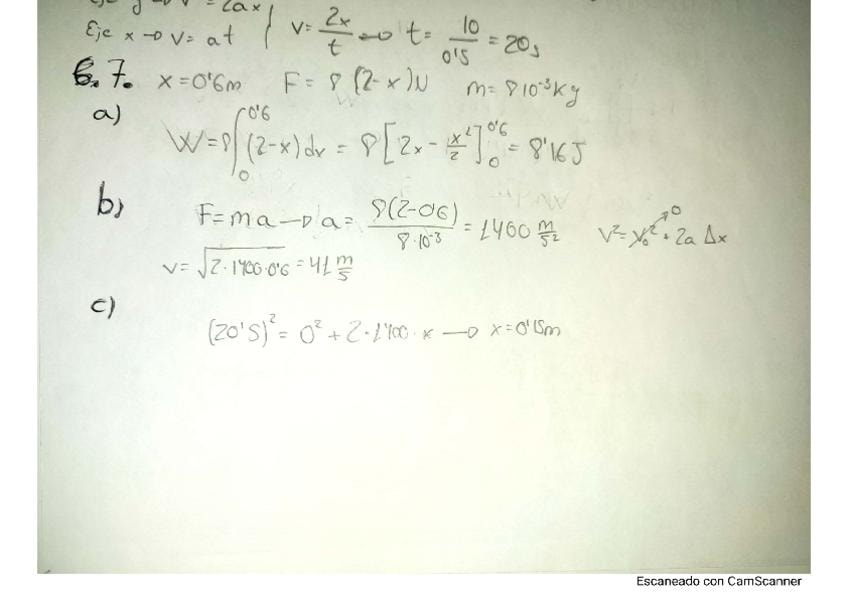 Eje y → v² = 2ax
Eje x → v = at } v = 2x/t → t = 10/0'5 = 20s
6.7. x = 0'6m F = 8 (2-x)N m = 8 10⁻³ Kg
a)
W = 8∫₀^0'6 (2-x)dx = 8[2x - x²/2]₀^0'6 = 8'16J
b)
F = ma → a = 8(2-0'6)/8·10⁻³ = 1400 m/s² v² = v₀²↗0 + 2a Δx
v = √2·1400·0'6 = 41 m/s
c)
(20'5)² = 0² + 2·1400·x → x = 0'15m
Escaneado con CamScanner